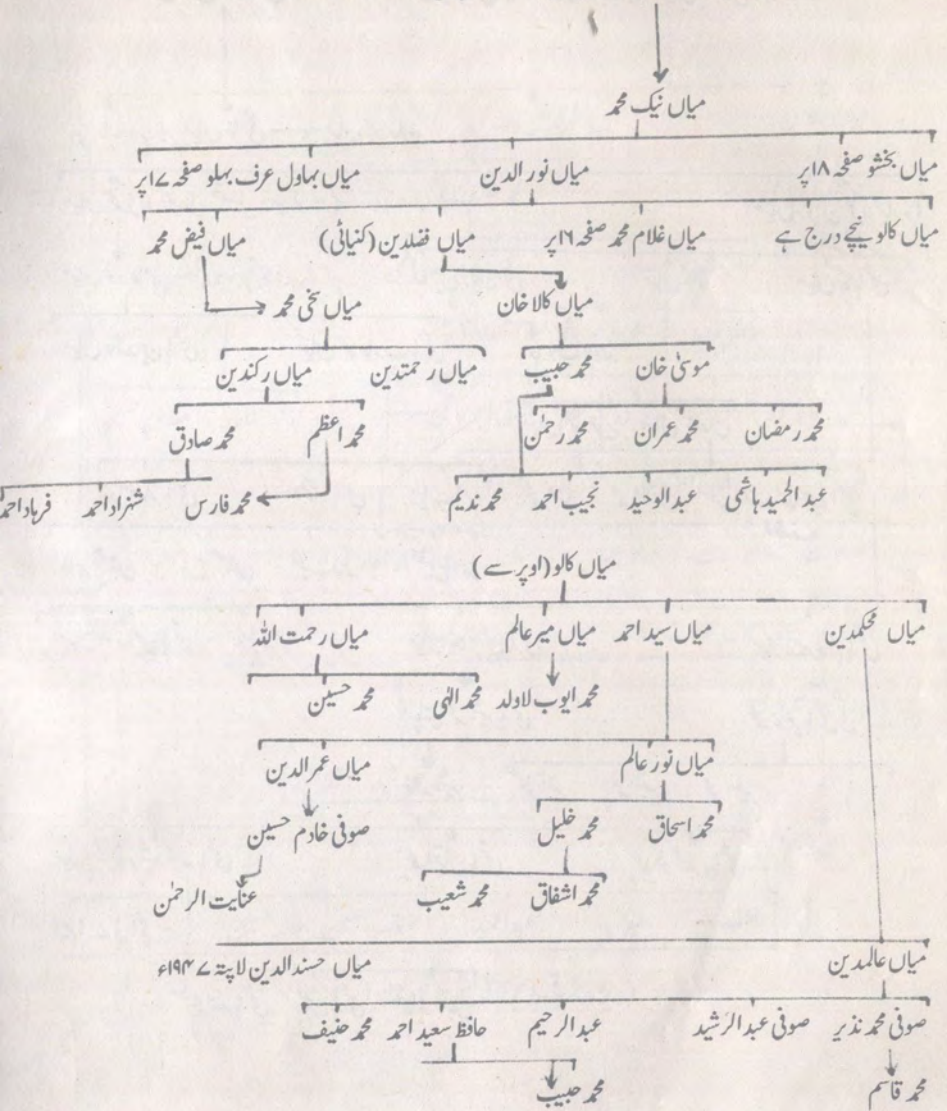 میاں نیک محمد
میاں بخشو صفحہ ۱۸ پر میاں نور الدین میاں بہاول عرف بہلو صفحہ ۱۷ پر
میاں کالو نیچے درج ہے میاں غلام محمد صفحہ ۱۶ پر میاں فضلدین (کنیائی) میاں فیض محمد
میاں کالا خان میاں سخی محمد
موسیٰ خان محمد حبیب میاں رحمتدین میاں رکندین
محمد رمضان محمد عمران محمد رحمٰن محمد اعظم محمد صادق
عبد الحمید ہاشمی عبد الوحید نجیب احمد محمد ندیم محمد فارس شہزاد احمد فرہاد احمد
میاں کالو (اوپر سے)
میاں محکمدین میاں سید احمد میاں میر عالم میاں رحمت اللہ
محمد ایوب لاولد محمد الٰہی محمد حسین
میاں نور عالم میاں عمر الدین
محمد اسحاق محمد خلیل صوفی خادم حسین
محمد اشفاق محمد شعیب عنایت الرحمٰن
میاں عالمدین میاں حسند الدین لاپتہ ۱۹۴۷ء
صوفی محمد نذیر صوفی عبد الرشید عبد الرحیم حافظ سعید احمد محمد حنیف
محمد قاسم محمد حبیب